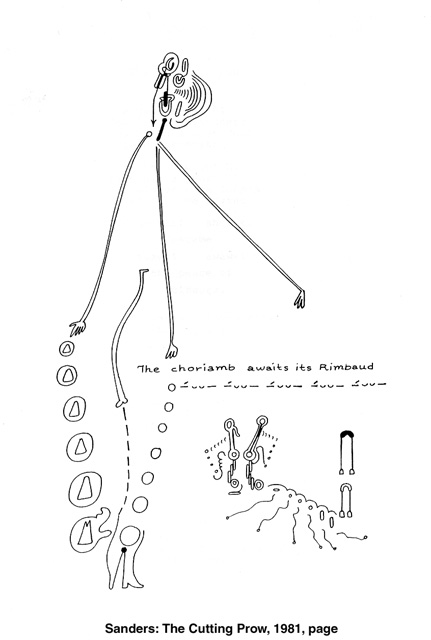 The choriamb awaits its Rimbaud
Sanders: The Cutting Prow, 1981, page